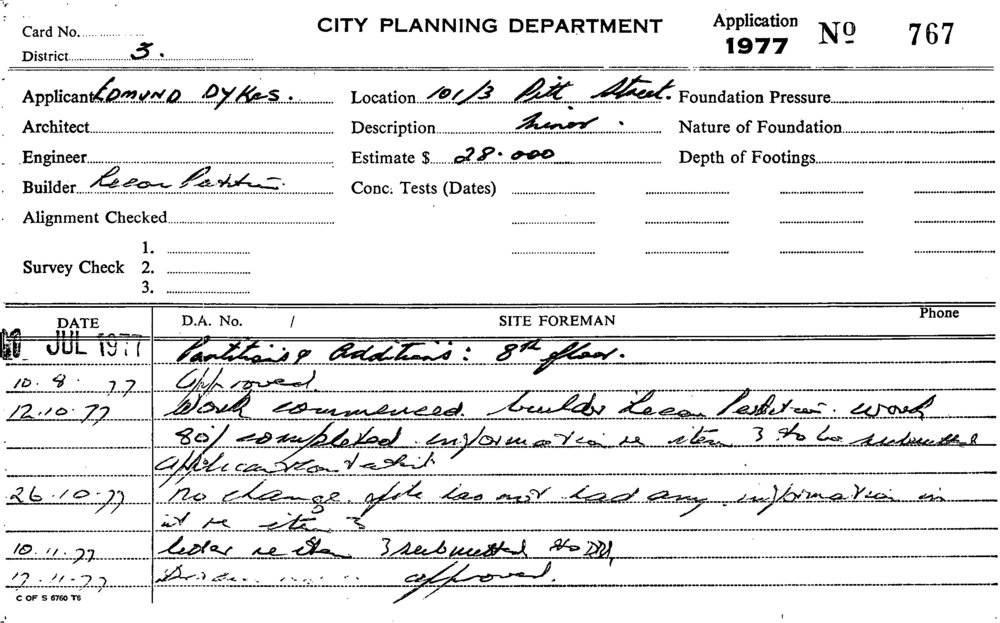 Card No.
District 3.
CITY PLANNING DEPARTMENT
Application
1977
No 767
Applicant EDMUND DYKES.
Location 101/3 Pitt Street.
Foundation Pressure
Architect
Description Minor.
Nature of Foundation
Engineer
Estimate $ 28.000
Depth of Footings
Builder
Conc. Tests (Dates)
Alignment Checked
Survey Check
1.
2.
3.
DATE
D.A. No. /
SITE FOREMAN
Phone
JUL 1977 Partitions & Additions: 8th floor.
10.8.77 Approved
12.10.77 Work commenced. builder work
80% completed information re item 3 to be submitted
26.10.77 no change. file has not had any information in
it re item 3
10.11.77 letter re item 3 submitted to
17.11.77 approved.
C OF S 6760 T6